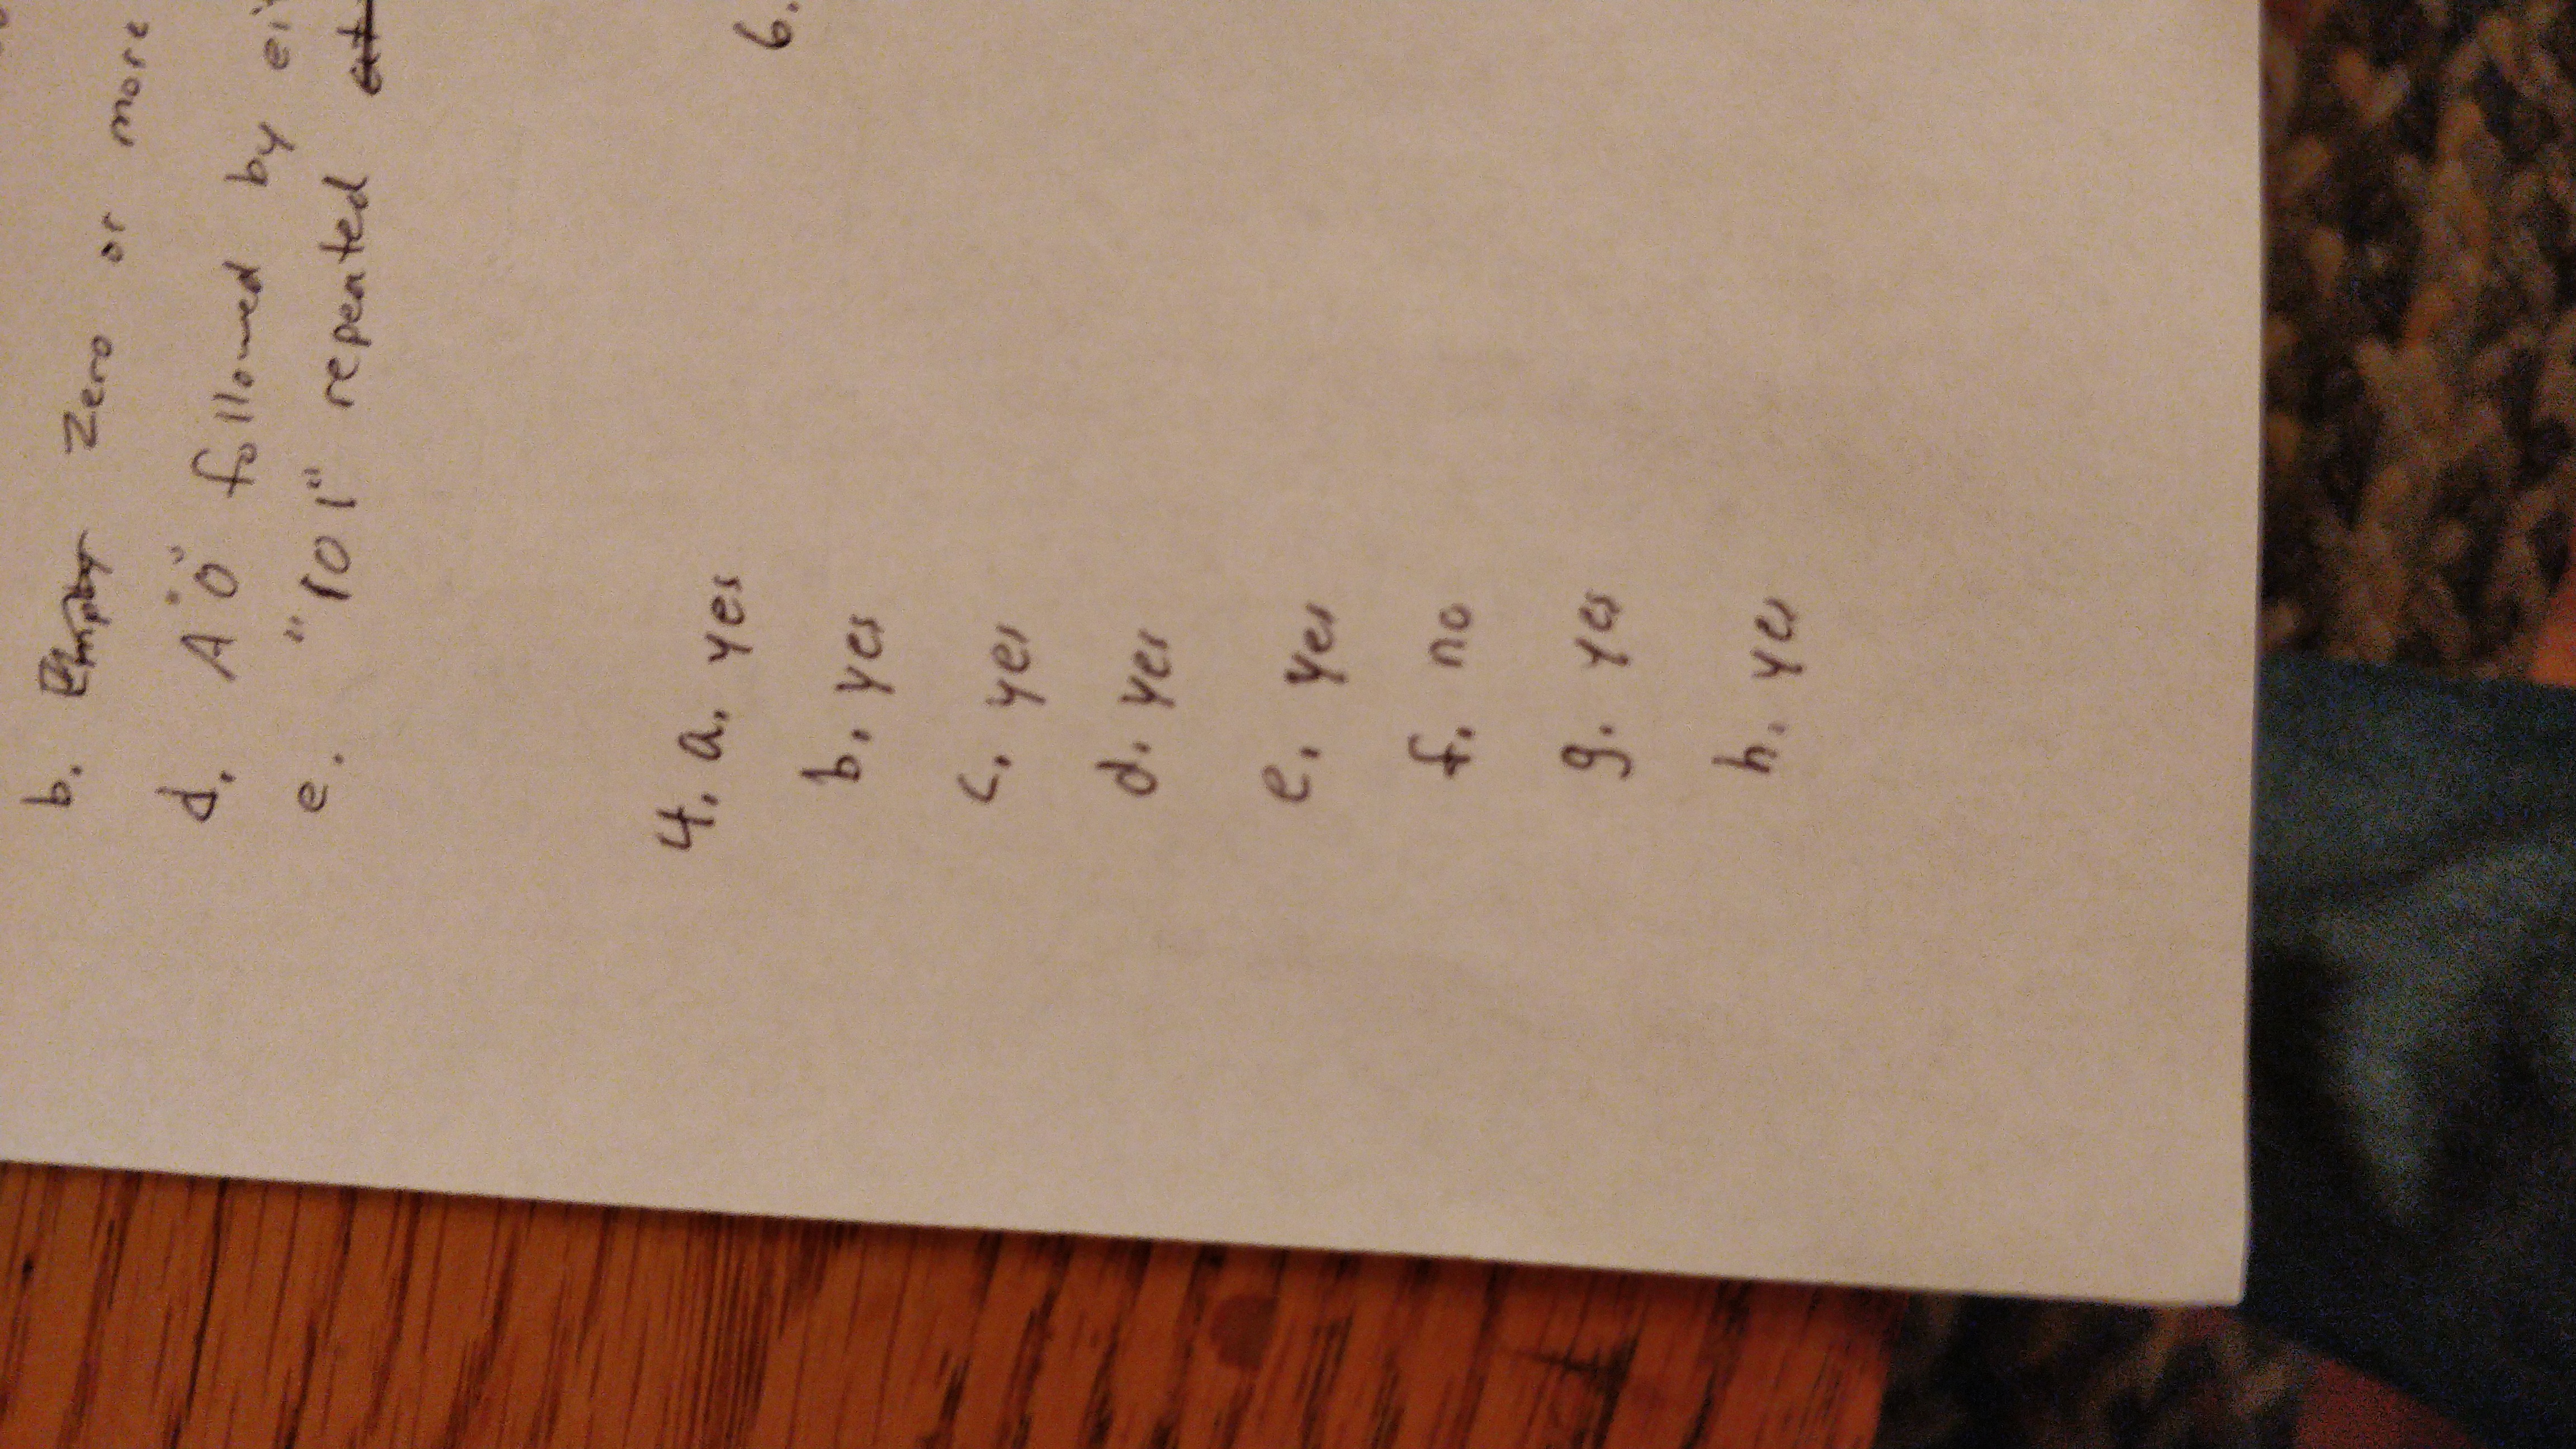 b. Empty Zero or more
d. A "0" followed by
e. "101" repeated at
4. a. yes
6.
b. yes
c. yes
d. yes
e. yes
f. no
g. yes
h. yes